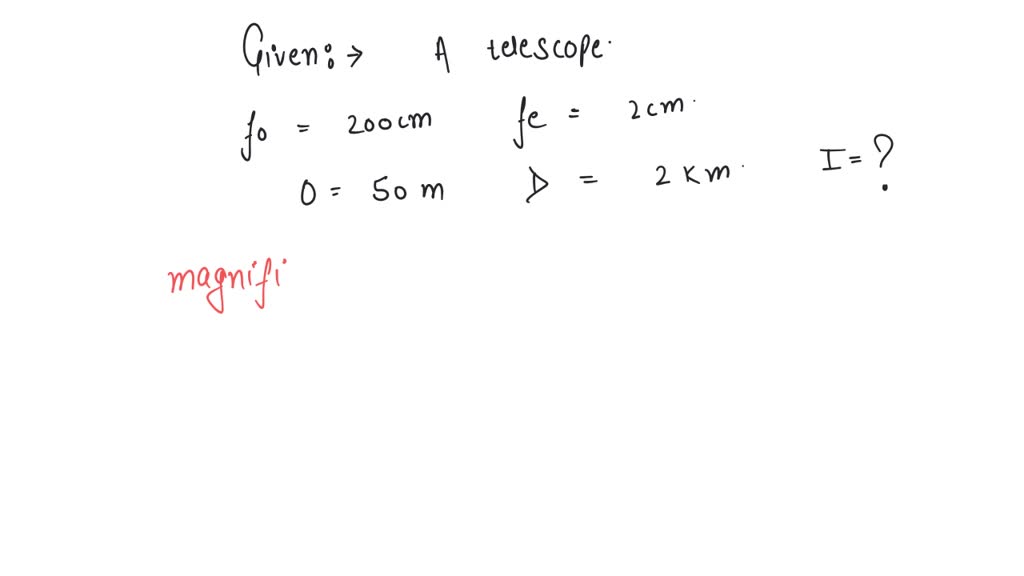 Given:→ A telescope.
fo = 200cm fe = 2cm.
O = 50 m D = 2 Km. I = ?
magnifi